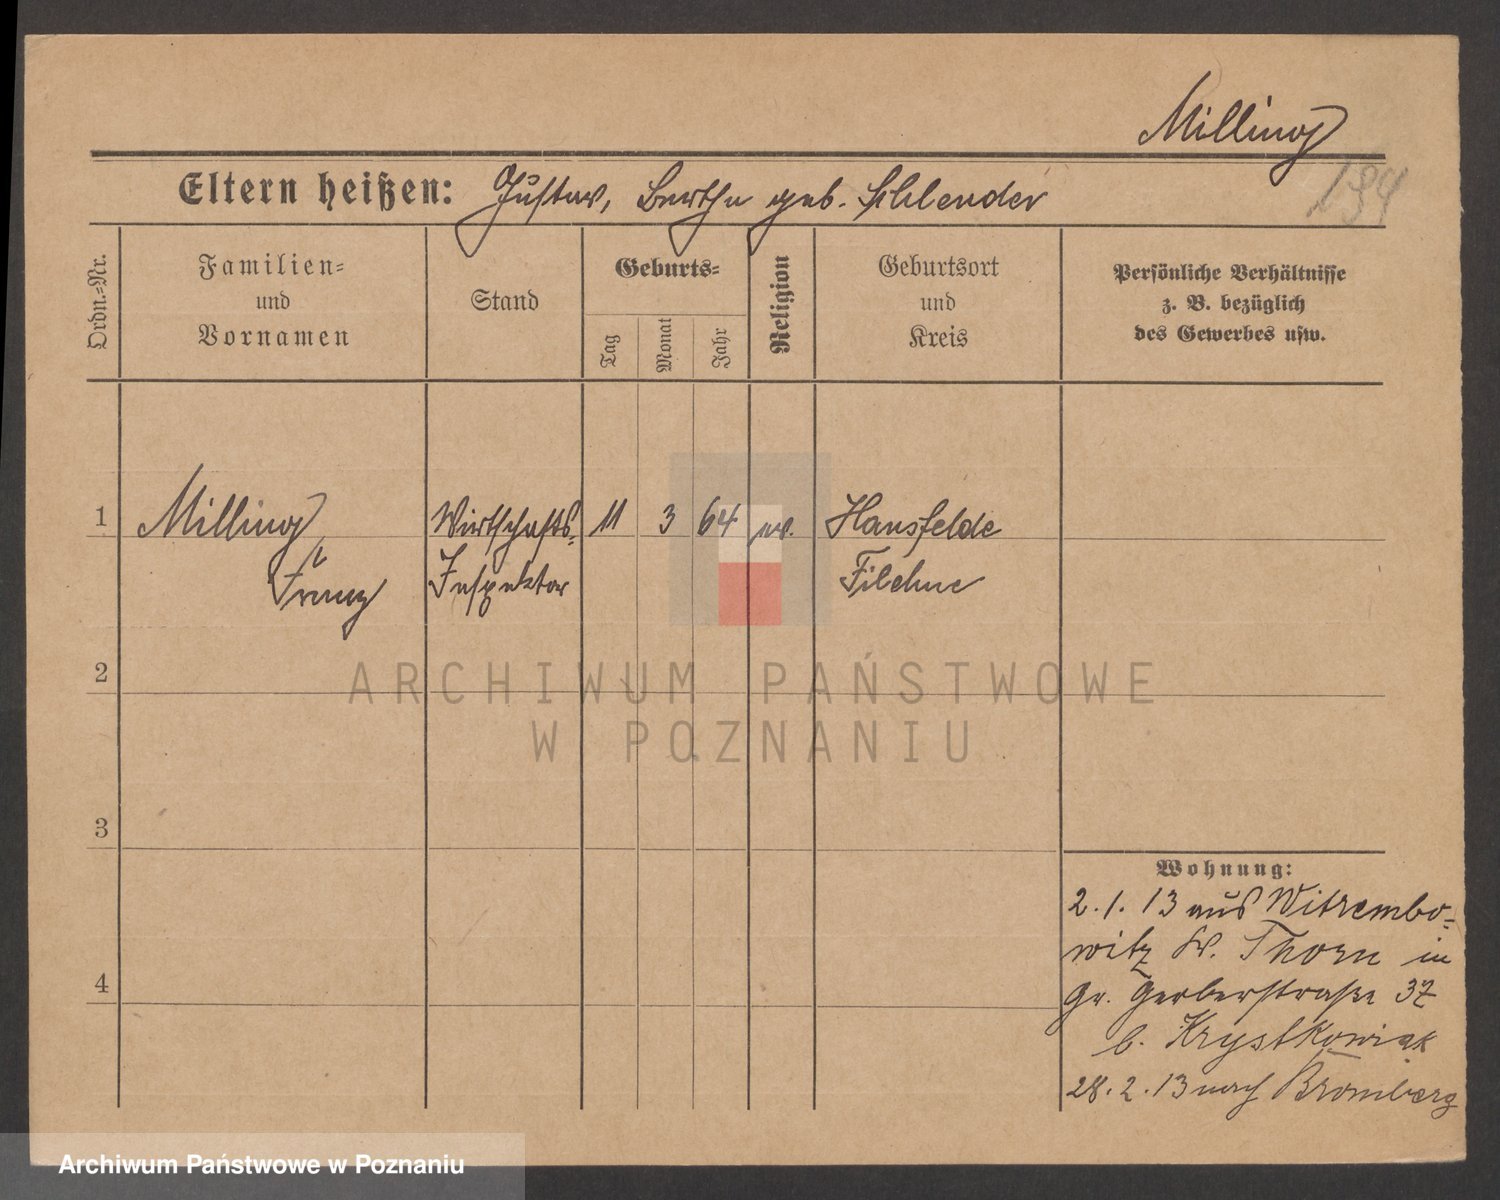 Milling
194
Eltern heißen: Gustav, Bertha geb. Schlender
Ordn.=Nr.
Familien=
und
Vornamen
Stand
Geburts=
Tag
Monat
Jahr
Religion
Geburtsort
und
Kreis
Persönliche Verhältnisse
z. B. bezüglich
des Gewerbes usw.
1 Milling, Wirtschafts= 11 3 64 ev. Hansfelde
Franz Inspektor Filehne
2
ARCHIWUM PAŃSTWOWE
W POZNANIU
3
4
Wohnung:
2.1.13 aus Witrembo=
witz Kr. Thorn in
Gr. Gerberstraße 37
b. Krystkowiak
28.2.13 nach Bromberg
Archiwum Państwowe w Poznaniu